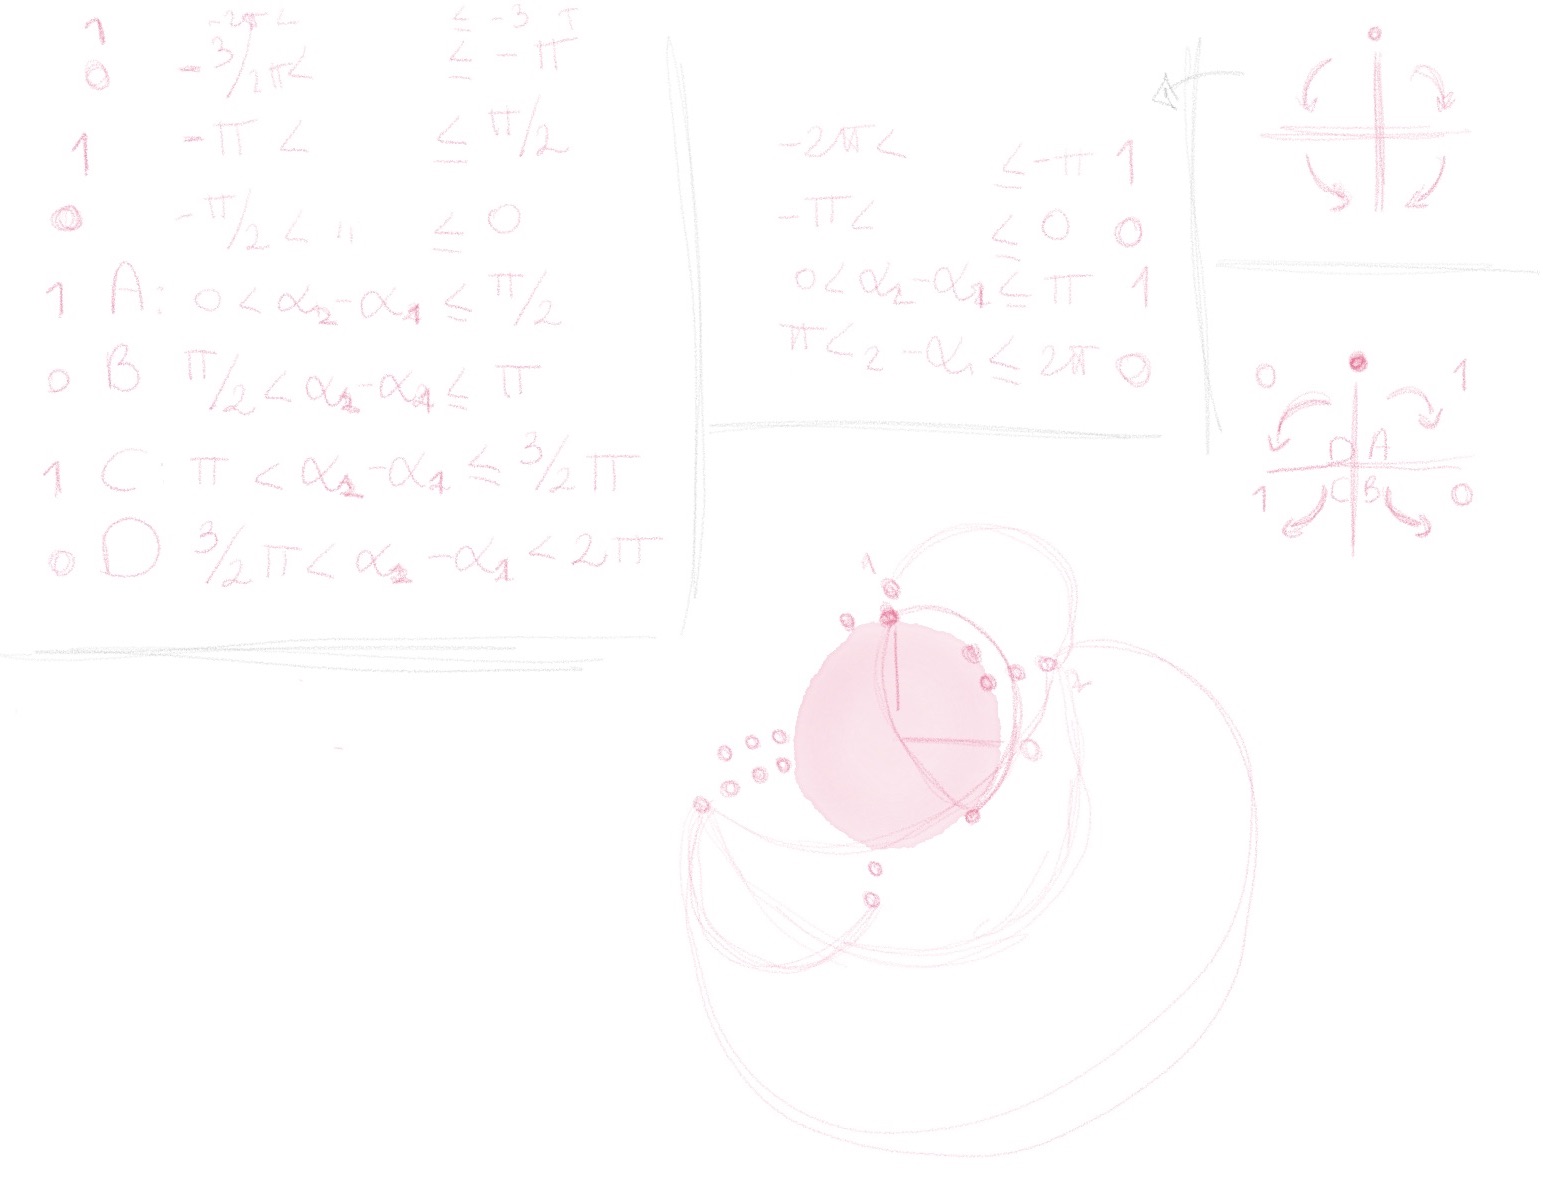 1 -2π < ≤ -3 π
0 -3/2π < ≤ -π
1 -π < ≤ π/2
0 -π/2 < " ≤ 0
1 A: 0 < α2-α1 ≤ π/2
0 B π/2 < α2-α1 ≤ π
1 C: π < α2-α1 ≤ 3/2π
0 D 3/2π < α2-α1 < 2π
-2π < ≤ -π 1
-π < ≤ 0 0
0 < α2-α1 ≤ π 1
π < 2-α1 ≤ 2π 0
0 1
D A
C B
1 0
1
2